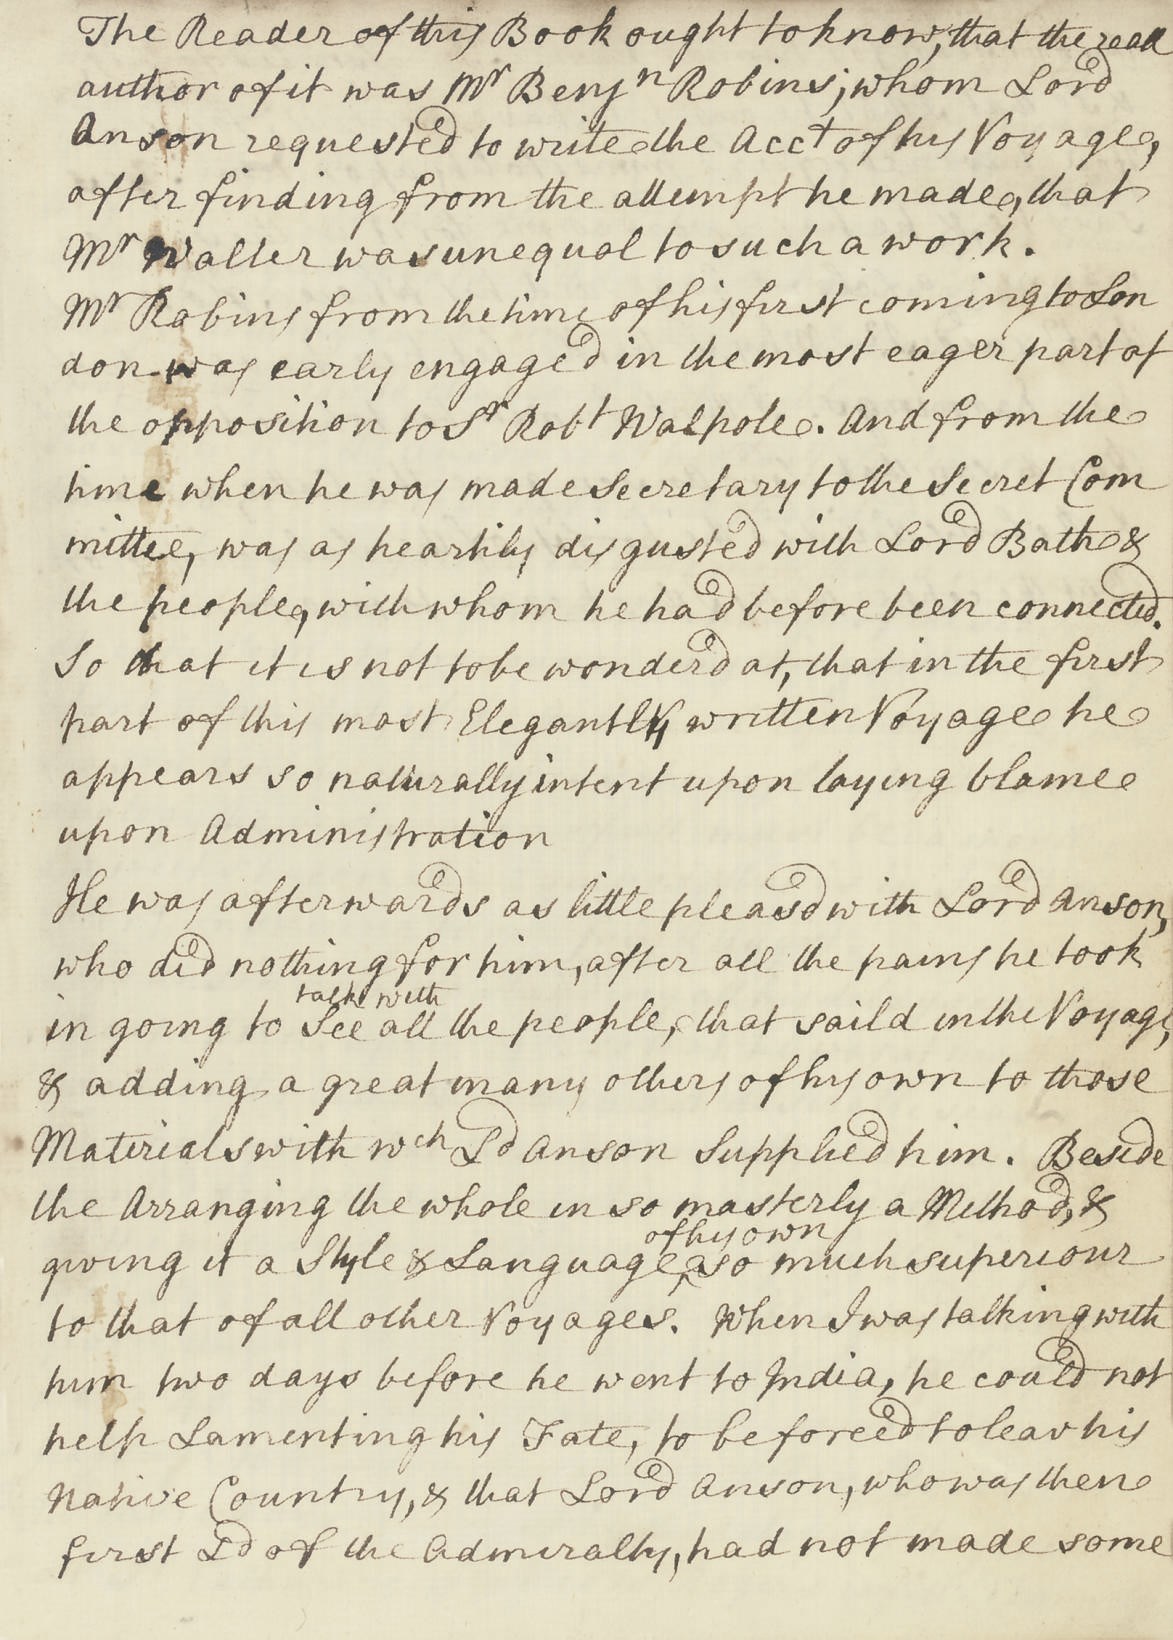 The Reader of this Book ought to know, that the reall
author of it was Mr Benjn Robins; whom Lord
Anson requested to write the Acct of his Voyage,
after finding from the attempt he made, that
Mr Walter was unequal to such a work.
Mr Robins from the time of his first coming to Lon
don was early engaged in the most eager part of
the opposition to Sr Robt Walpole. And from the
time when he was made Secretary to the Secret Com
mittee, was as heartily disgusted with Lord Bath &
the people, with whom he had before been connected.
So that it is not to be wonderd at, that in the first
part of this most Elegantly written Voyage he
appears so naturally intent upon laying blame
upon Administration
He was afterwards as little pleasd with Lord Anson,
who did nothing for him, after all the pains he took
talk with
in going to See all the people, that saild in the Voyage,
& adding a great many others of his own to those
Materials with wch Ld Anson Supplied him. Beside
the Arranging the whole in so masterly a Method, &
of his own
giving it a Style & Language, so much superiour
to that of all other Voyages. When I was talking with
him two days before he went to India, he could not
help Lamenting his Fate, to be forced to leav his
Native Country, & that Lord Anson, who was then
first Ld of the Admiralty, had not made some